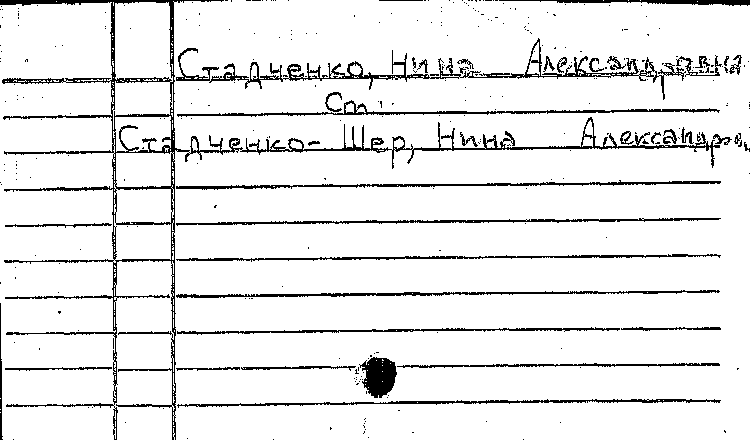 Стадченко, Нина Александровна
Cm.
Стадченко-Шер, Нина Александров